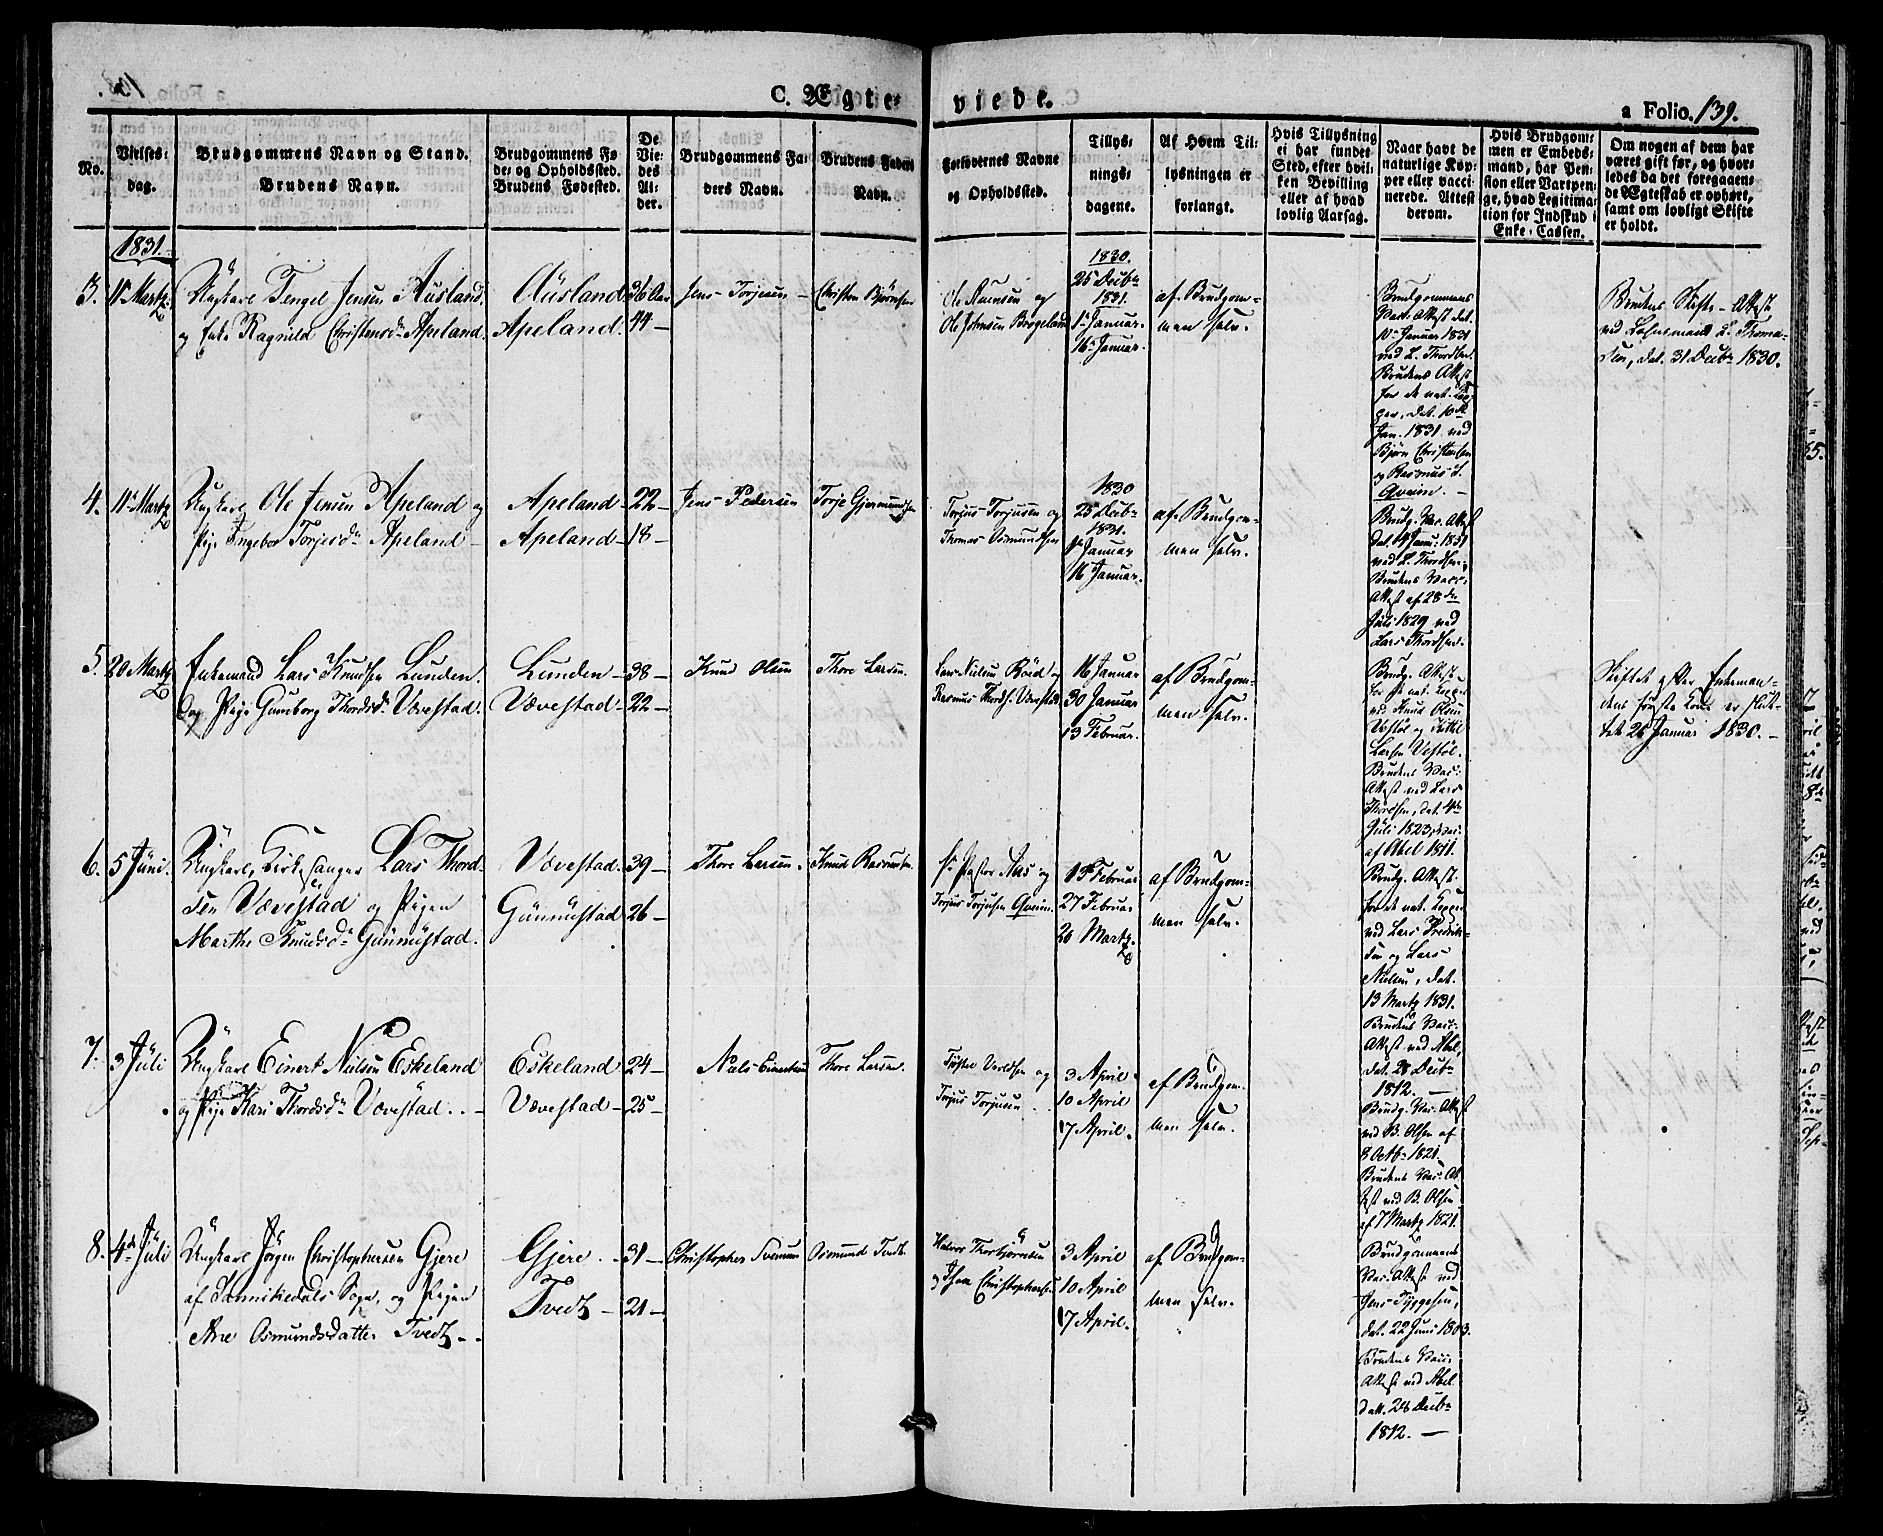 C. Ægte-
viede.
a Folio. 139.
No.
Vielses-
dag.
Brudgommens Navn og Stand.
Brudens Navn.
Brudgommens Fø-
de- og Opholdssted.
Brudens Fødested.
De
Vie-
des
Al-
der.
Brudgommens Fa-
ders Navn.
Brudens Faders
Navn.
Forlovernes Navne
og Opholdssted.
Tillys-
nings-
dagene.
Af Hvem Til-
lysningen er
forlangt.
Hvis Tillysning
ei har fundet
Sted, efter hvil-
ken Bevilling
eller af hvad
lovlig Aarsag.
Naar havt de
naturlige Kop-
per eller vacci-
nerede. Attest
derom.
Hvis Brudgom-
men er Embeds-
mand, har Pen-
sion eller Vartpen-
ge, hvad Legitima-
tion for Indskud i
Enke-Cassen.
Om nogen af dem har
været gift før, og hvor-
ledes da det foregaaen-
de Ægteskab er ophørt,
samt om lovligt Skifte
er holdt.
1831.
3. 11 Martz.
Ungkarl Tengel Jensen Ausland.
og Enke Ragnild Christensd. Apeland.
Ausland
Apeland.
36 Aar
44 —
Jens Torjesen —
Christen Bjørnsen
Ole
Ole Jensen
1830.
25 Decbr
1831.
1 Januar.
16 Januar.
af Brudgom-
men selv.
Brudgommens
Vac. Attest dat.
10 Januar 1831
ved L. Thordsen.
Brudens Attest
for de nat. Kop-
per, dat. 10de
Jan. 1831 ved
Bjørn Christensen
og Rasmus L.
Qveim. —
Brudens Skifte-Attest
ved Lehnsmand L. Thoma-
sen, dat. 31 Decbr 1830.
4. 11 Martz
Ungkarl Ole Jensen Apeland og
Pige Ingebor Torjesd. Apeland —
Apeland —
Apeland —
22 —
18 —
Jens Pedersen
Torje Gjermundsen
Torjus Torjusen og
Thomas Osmundsen
1830
25 Decbr
1831.
1 Januar
16 Januar.
af Brudgom-
men selv.
Brudg. Vac. Attest
ved L. Thordsen.
Brudens Vacc.
Attest af 28de
Juli 1829 ved
Lars Thordsen.
5. 20 Martz
Enkemand Lars Knudsen Lunden.
og Pige Gunborg Thordsd. Vævestad.
Lunden —
Vævestad —
38 —
22 —
Knud Olsen
Thore Larsen.
Lars Nielsen Røed og
Rasmus Thords. Vævestad
16 Januar
30 Januar
13 Februar.
af Brudgom-
men selv.
Brudg. Attest
for de nat. Kopper
ved Knud Olsen
Vestøl og Kittel
Larsen Vestøl.
Brudens Vac.
Attest ved Lars
Thordsen, dat. 4de
Juli 1823,
af Abel 1811.
Skiftet efter Enkeman-
dens første Kone er slut-
tet 26 Januar 1830. —
6. 5 Juni.
Ungkarl, Kirkesanger Lars Thord-
sen Vævestad og Pigen
Marthe Knudsd. Gunnustad.
Vævestad.
Gunnustad
39 —
26 —
Thore Larsen.
Knud Rasmusen.
Hr. Pastor Aas og
Torjus Torjusen Qveim.
13 Februar
27 Februar
20 Martz.
af Brudgom-
men selv.
Brudg. Attest.
for de nat. Kopper
ved Lars Fredrik-
sen og Lars
Nielsen, dat.
13 Martz 1831.
Brudens Vacc.
Attest ved Abel,
dat. 28 Decbr
1812. —
7. 3 Juli
Ungkarl Einert Nielsen Eskeland
og Pige Kari Thordsd. Vævestad. —
Eskeland
Vævestad —
24 —
25 —
Niels Einertsen
Thore Larsen.
og
Torjus Torjusen
3 April.
10 April
17 April.
af Brudgom-
men selv.
Brudg. Vac. Attest
ved B. Olsen af
8 Octbr 1821.
Brudens Vac. At-
test ved B. Olsen
af 7 Martz 1821.
8. 4de Juli
Ungkarl Jørgen Christophersen Gjere
af Sannikedals Sogn, og Pigen
Ane Osmundsdatter Tvedt —
Gjere. —
Tvedt —
31 —
21 —
Christopher
Osmund Tvedt
Halvor Thorbjørnsen
og Jens Christophersen
3 April
10 April
17 April.
af Brudgom-
men selv.
Brudgommens
Vac. Attest ved
Jens Tyggesen,
dat. 22 Juni 1803.
Brudens Vac.
Attest ved Abel
dat. 28 Decbr
1812. —